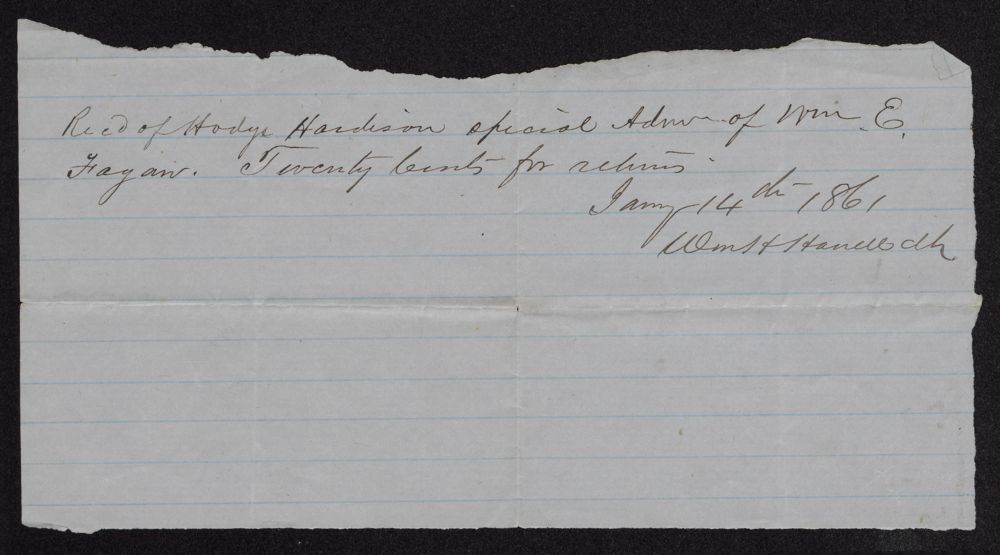 Rec'd of Hodge Hardison special Admr of Wm E.
Fagan. Twenty Cents for returns
Jany 14th 1861
Wm H Harrell clk